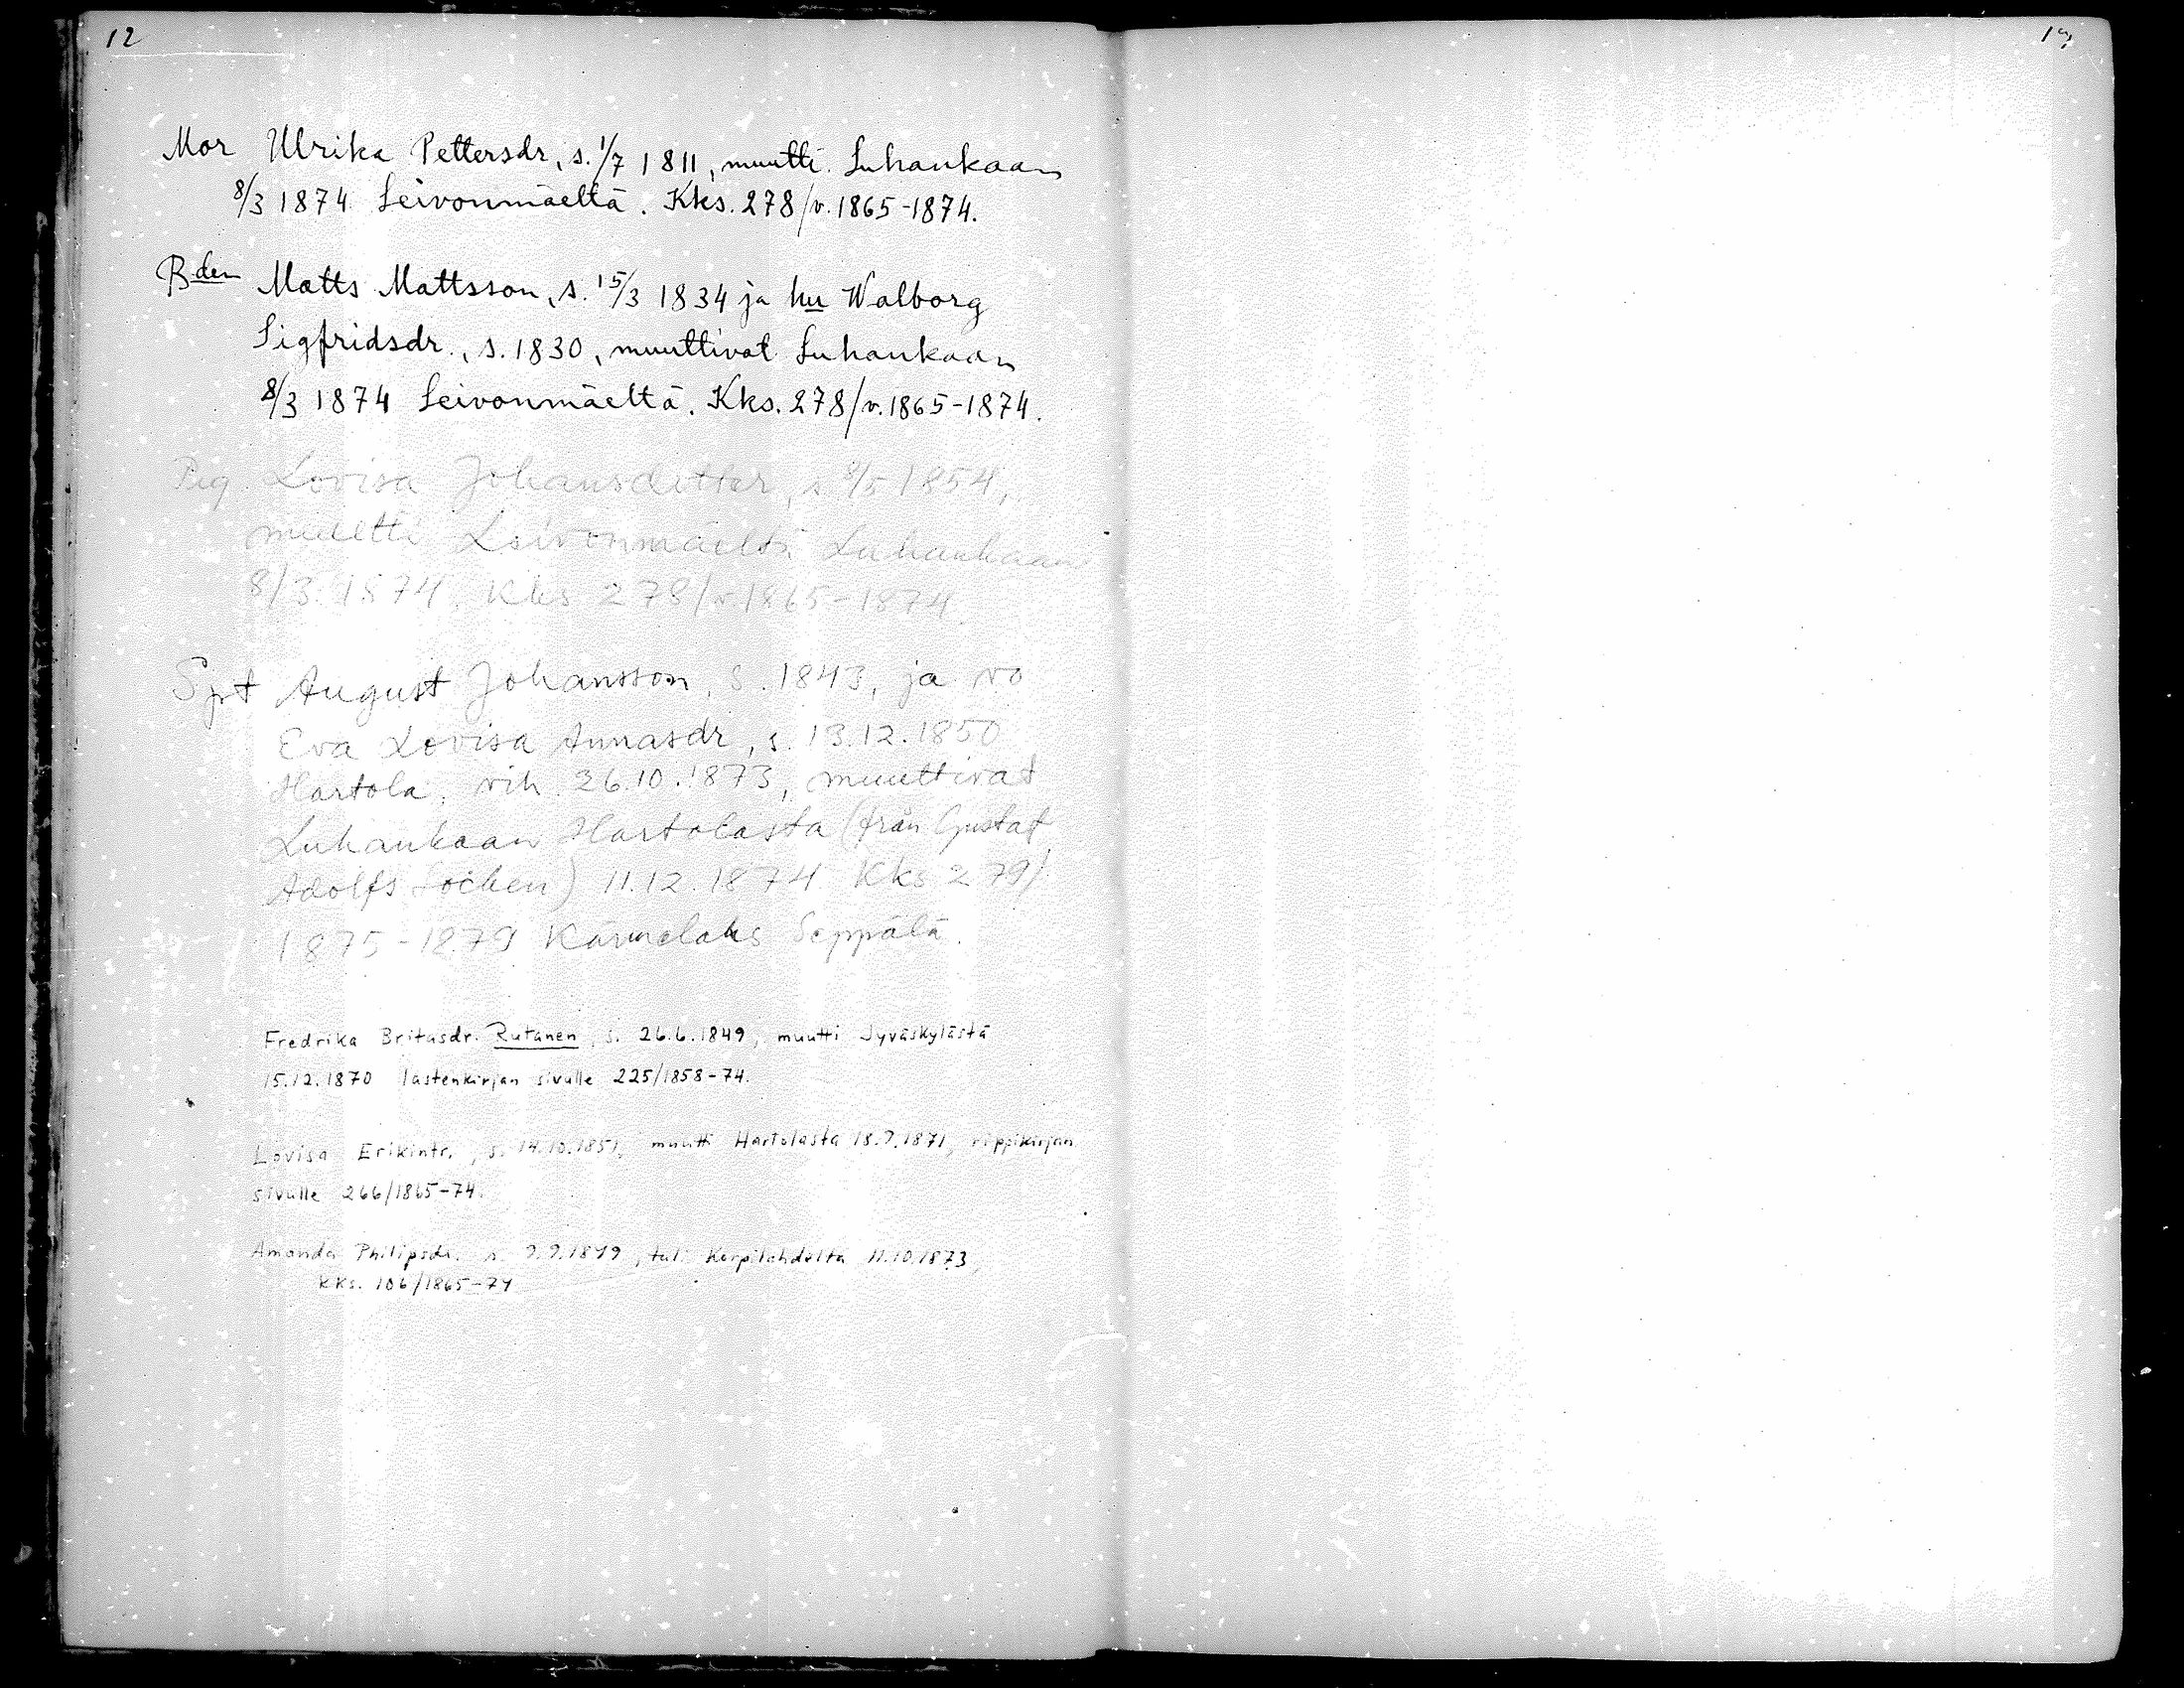 12
Mor Ulrika Pettersdr, s. 1/7 1811, muutti Luhankaan
8/3 1874 Leivonmäeltä. Kks. 278/v. 1865-1874.
Bden Matts Mattsson, s. 15/3 1834 ja hu Walborg
Sigfridsdr., s. 1830, muuttivat Luhankaan
8/3 1874 Leivonmäeltä. Kks. 278/v. 1865-1874.
Pig. Lovisa Johansdotter, s. 8/5 1854,
muutti Leivonmäeltä Luhankaan
8/3 1874. Kks 278/v 1865-1874
Spt August Johansson, s. 1843, ja vo
Eva Lovisa Annasdr, s. 13.12.1850
Hartola, vih. 26.10.1873, muuttivat
Luhankaan Hartolasta (från Gustaf
Adolfs Socken) 11.12.1874 Kks 279/
1875-1879 Kärnelaks Seppälä.
Fredrika Britasdr. Rutanen, s. 26.6.1849, muutti Jyväskylästä
15.12.1870 lastenkirjan sivulle 225/1858-74.
Lovisa Erikintr., s. 14.10.1851, muutti Hartolasta 18.9.1871, rippikirjan
sivulle 266/1865-74.
Amanda Philipsdr. s. 9.9.1849, tuli Korpilahdelta 11.10.1873,
kks. 106/1865-74